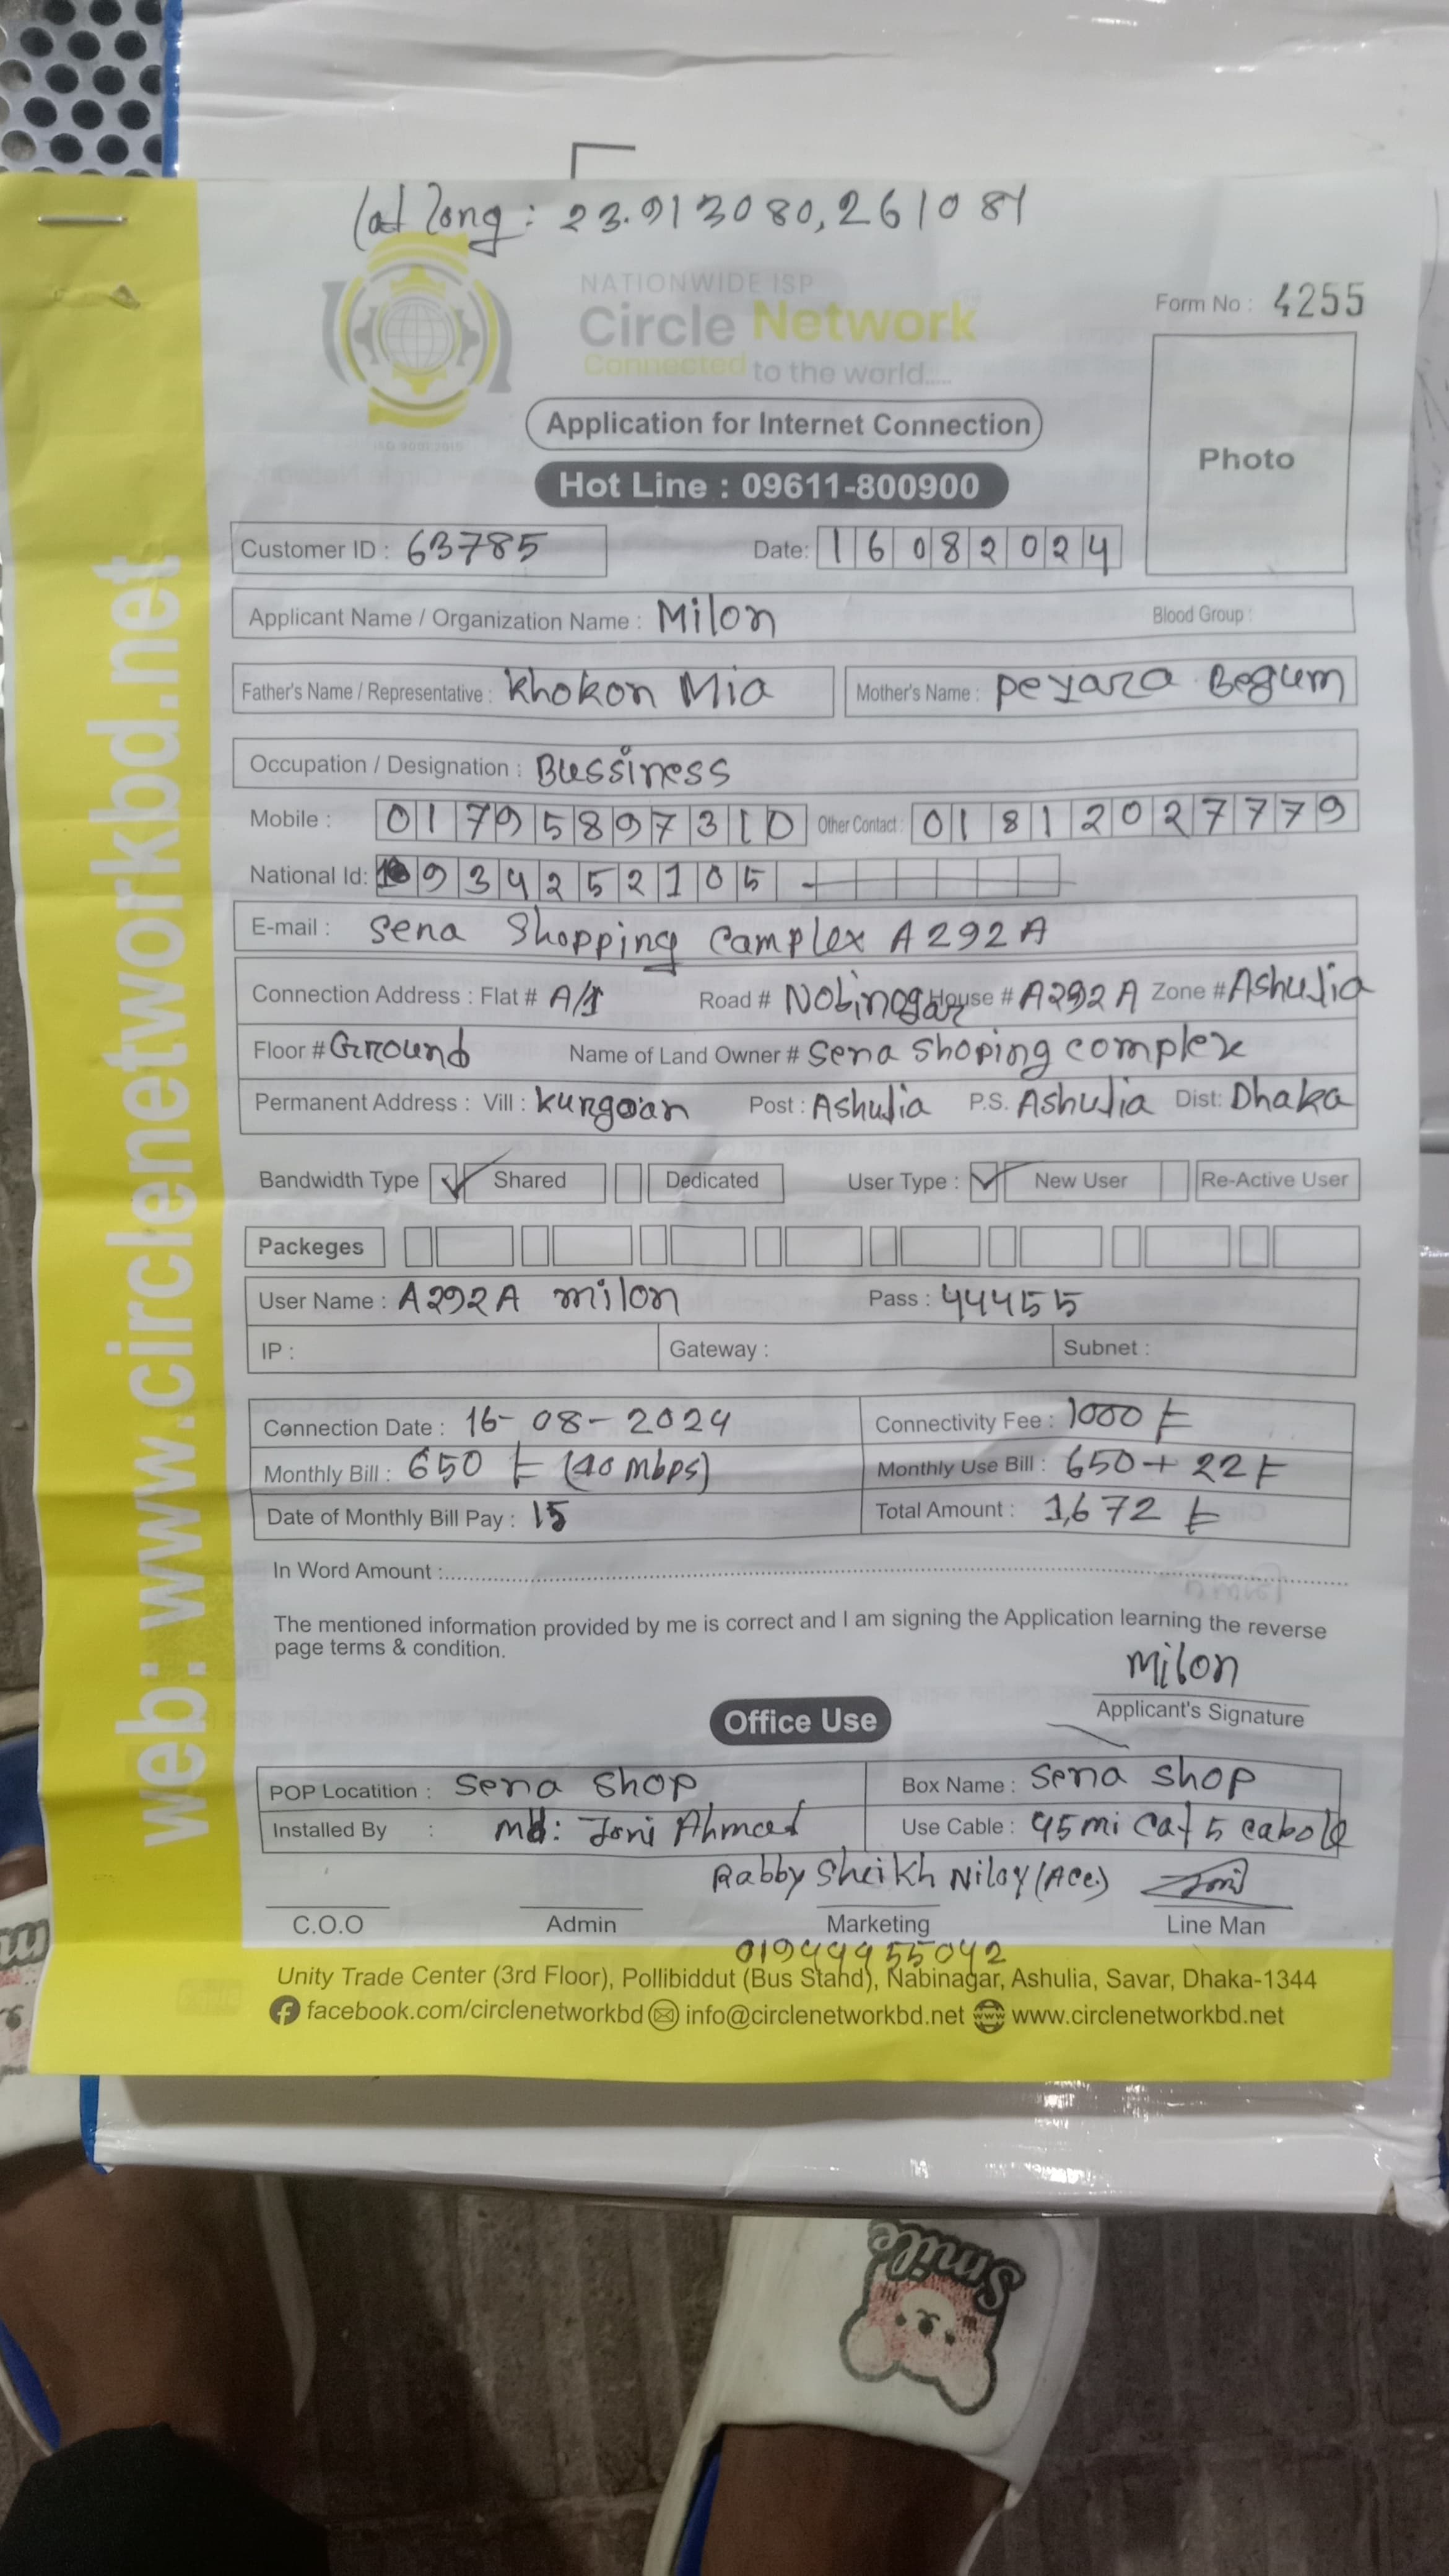 Lat long: 23.913080,261081
NATIONWIDE ISP
Circle Network
Connected to the world.....
ISO 9001:2015
Form No : 4255
Application for Internet Connection
Photo
Hot Line : 09611-800900
Customer ID : 63785 Date: 16082024
Applicant Name / Organization Name : Milon Blood Group :
Father's Name / Representative : Khokon Mia Mother's Name : Peyara Begum
Occupation / Designation : Bussiness
Mobile : 01795897310 Other Contact : 01812027779
National Id: 934252105
E-mail : Sena Shopping Camplex A292A
Connection Address : Flat # A/1 Road # Nobinogar House # A292A Zone # Ashulia
Floor # Ground Name of Land Owner # Sena Shoping complex
Permanent Address : Vill : Kurgoan Post : Ashulia P.S. Ashulia Dist: Dhaka
Bandwidth Type Shared Dedicated User Type : New User Re-Active User
Packeges
User Name : A292A milon Pass : 44455
IP : Gateway : Subnet :
Connection Date : 16-08-2024 Connectivity Fee : 1000 ৳
Monthly Bill : 650 ৳ (40 mbps) Monthly Use Bill : 650 + 22 ৳
Date of Monthly Bill Pay : 15 Total Amount : 1,672 ৳
In Word Amount :
The mentioned information provided by me is correct and I am signing the Application learning the reverse
page terms & condition.
Milon
Applicant's Signature
Office Use
POP Locatition : Sena Shop Box Name : Sena Shop
Installed By : Md: Joni Ahmed Use Cable : 95mi Cat 5 cabole
Rabby Sheikh Niloy (Ace.) Joni
C.O.O Admin Marketing Line Man
01944455042
Unity Trade Center (3rd Floor), Pollibiddut (Bus Stand), Nabinagar, Ashulia, Savar, Dhaka-1344
facebook.com/circlenetworkbd info@circlenetworkbd.net www.circlenetworkbd.net
web: www.circlenetworkbd.net
Smile